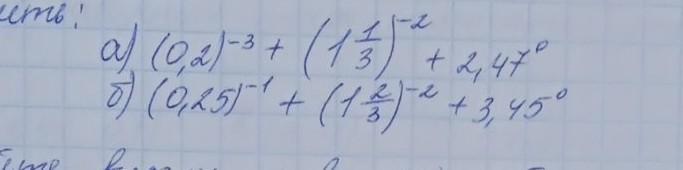 а) (0,2)⁻³ + (1 1/3)⁻² + 2,47⁰
б) (0,25)⁻¹ + (1 2/3)⁻² + 3,45⁰